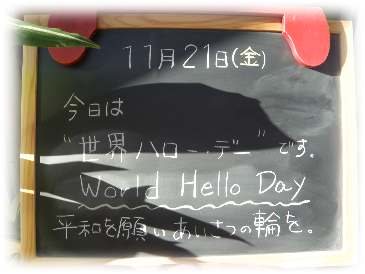 11月21日(金)
今日は
"世界ハロー・デー"です。
World Hello Day
平和を願いあいさつの輪を。